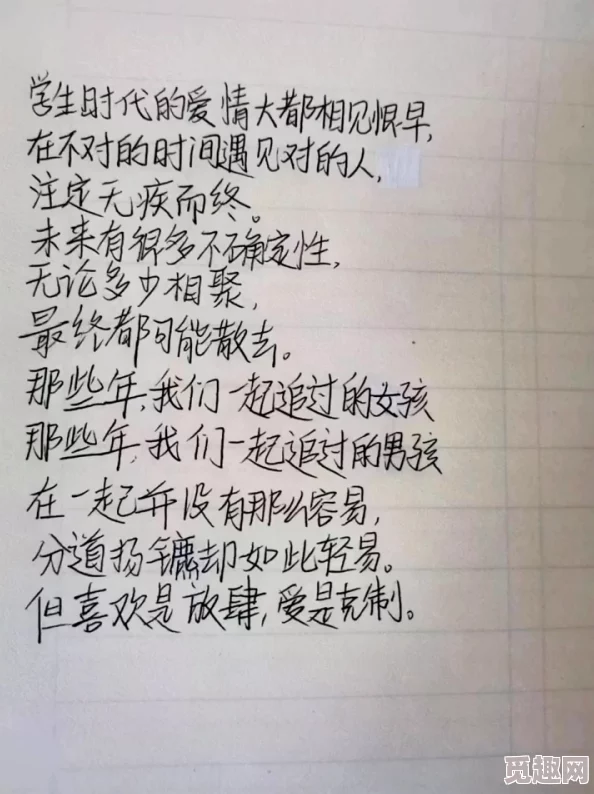 学生时代的爱情大都相见恨早,
在不对的时间遇见对的人,
注定无疾而终。
未来有很多不确定性,
无论多少相聚,
最终都可能散去。
那些年,我们一起追过的女孩
那些年,我们一起追过的男孩
在一起并没有那么容易,
分道扬镳却如此轻易。
但喜欢是放肆,爱是克制。
觅趣网